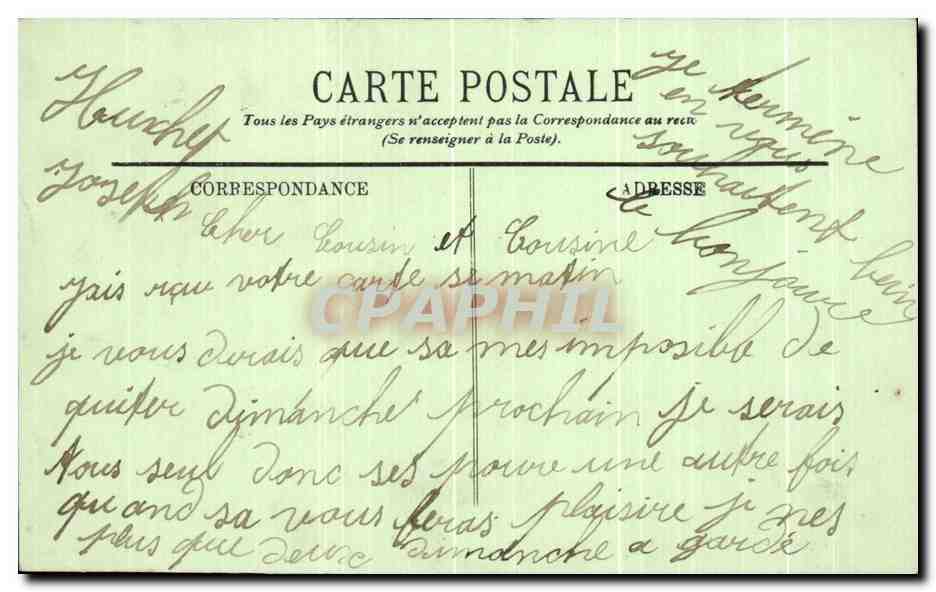 CARTE POSTALE
Tous les Pays étrangers n'acceptent pas la Correspondance au recto
(Se renseigner à la Poste).
CORRESPONDANCE
ADRESSE
Joseph
Cher Cousin et Cousine
jais reçu votre carte se matin
je vous derais que sa mes imposible de
quiter dimanche prochain je serais
tous seul donc ses pour une autre fois
quand sa vous feras plaisire je nes
plus que deux dimanche a gardé
je termine
en vous
souhaitent bein
le bonjoure
CPAPHIL